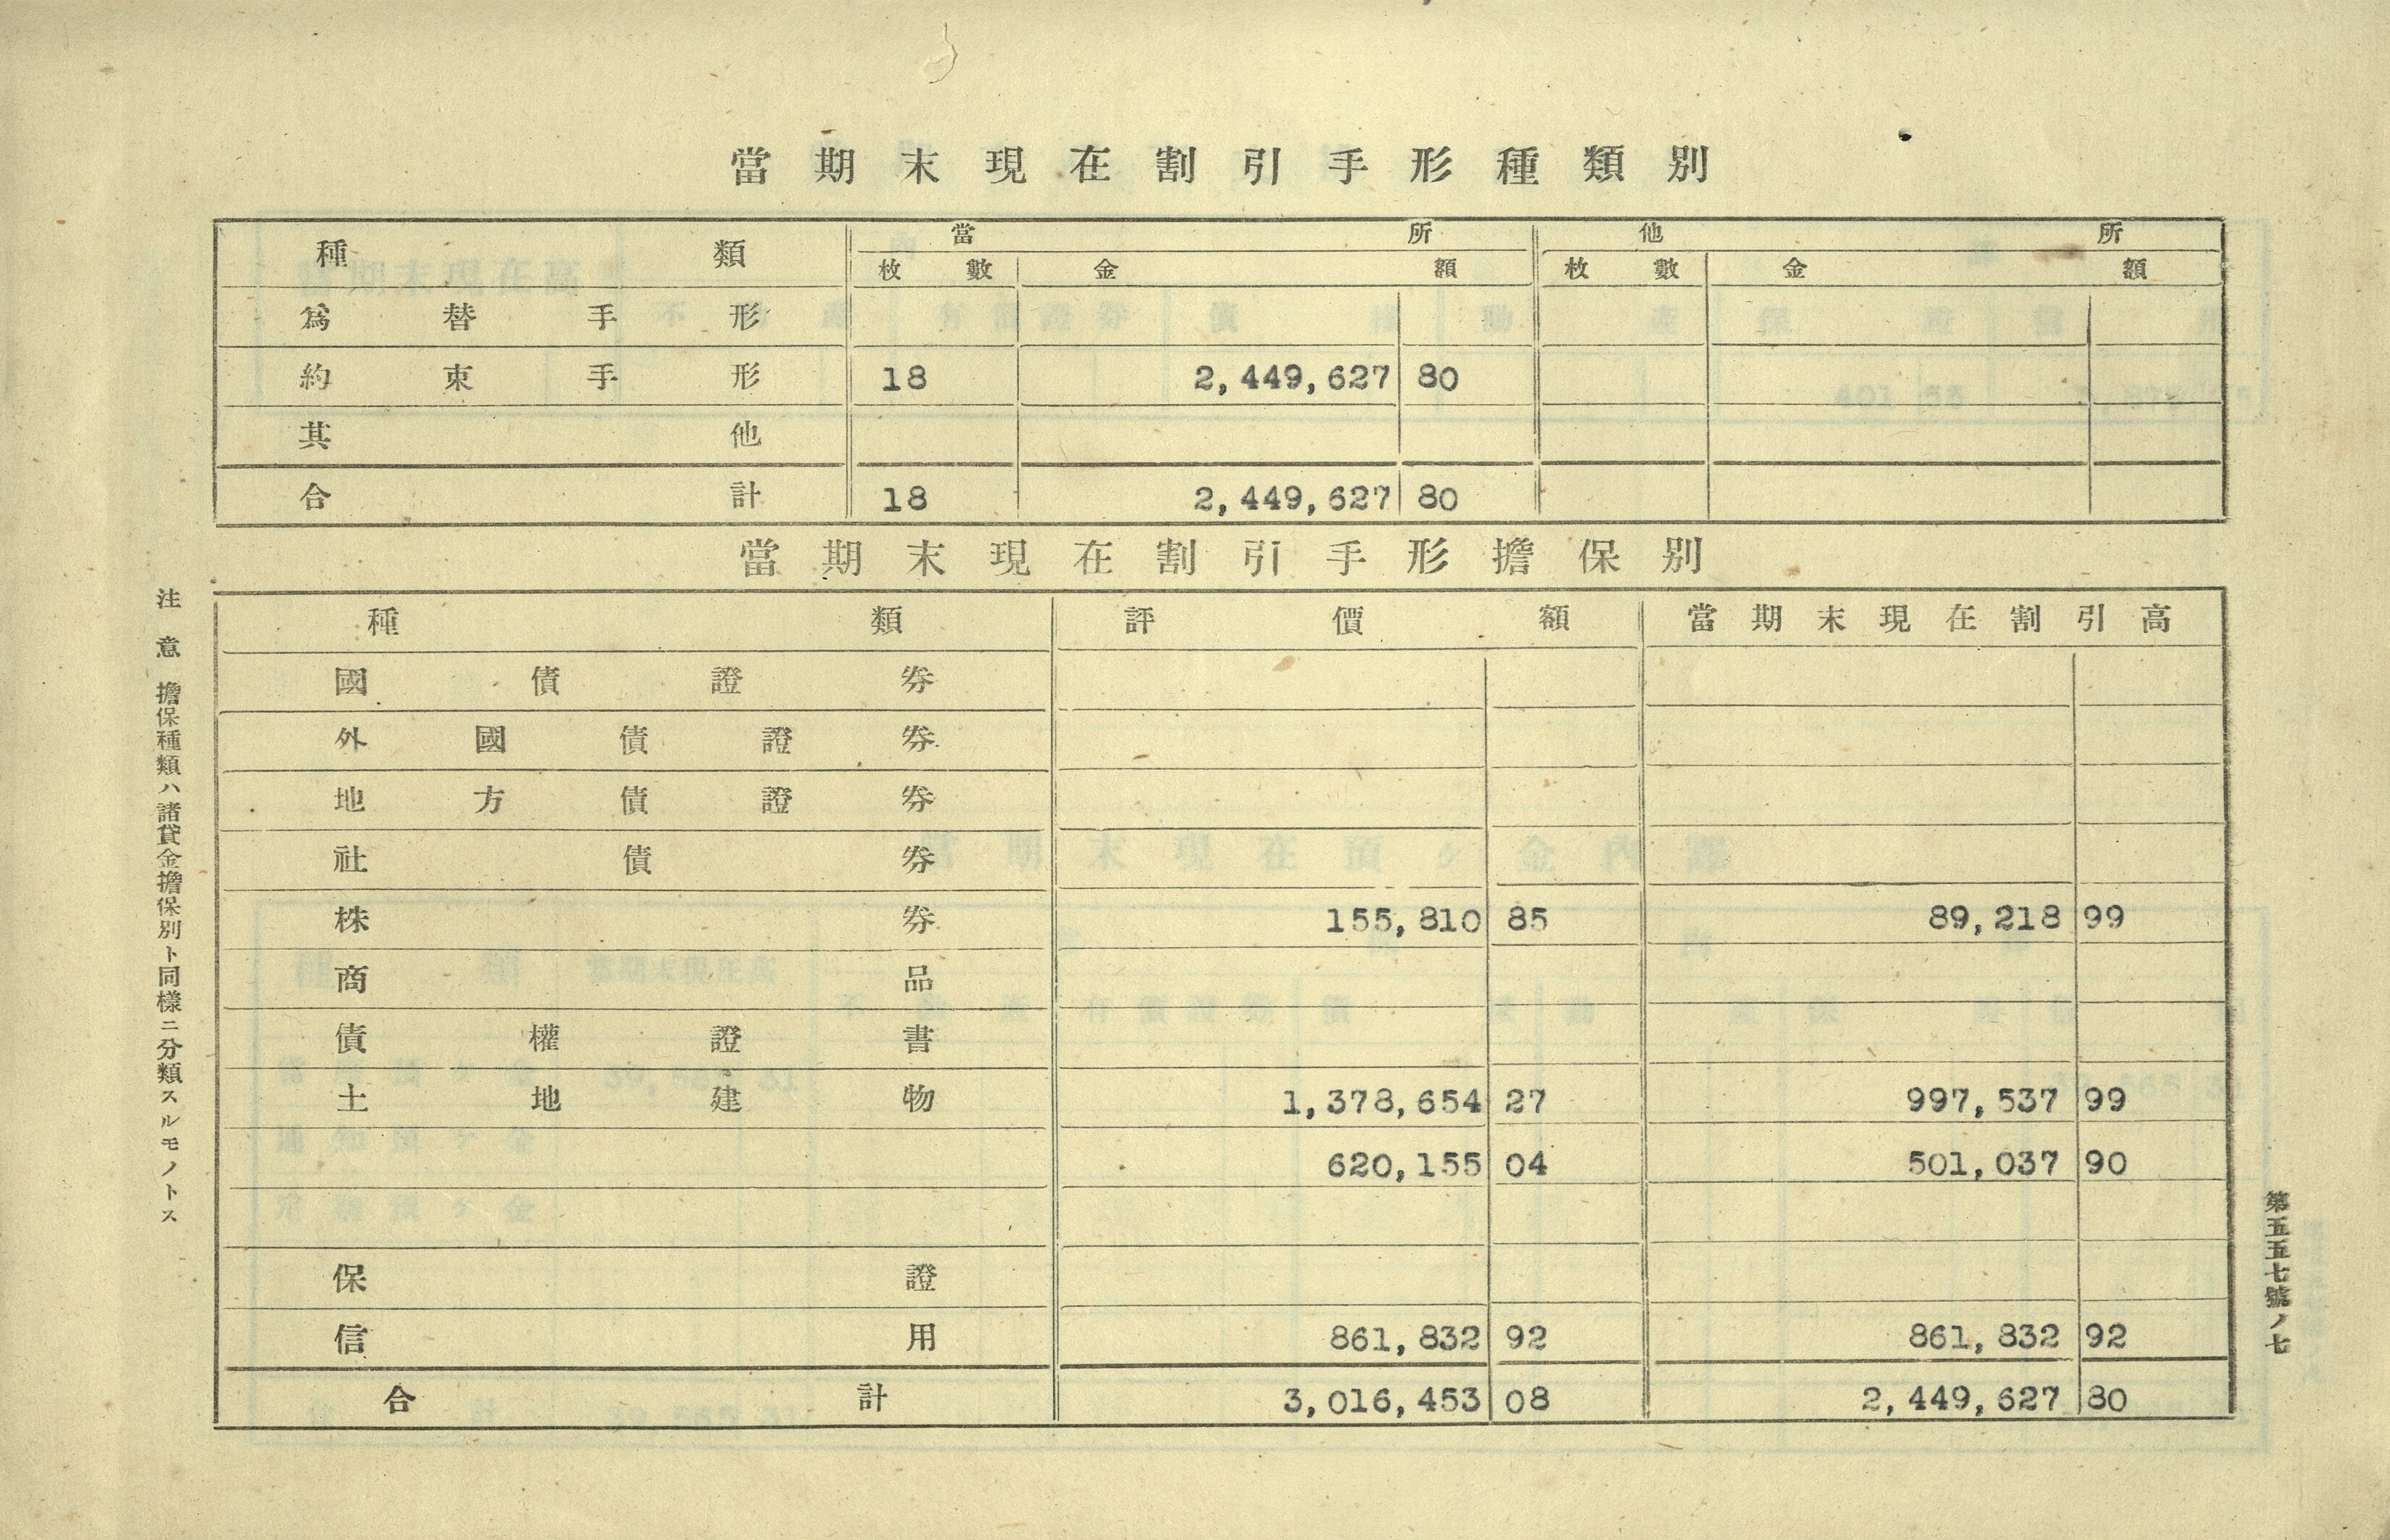 當期末現在割引手形種類別
種類 當所 他所
枚數 金額 枚數 金額
爲替手形
約束手形 18 2,449,627 80
其他
合計 18 2,449,627 80
當期末現在割引手形擔保別
種類 評價額 當期末現在割引高
國債證券
外國債證券
地方債證券
社債券
株券 155,810 85 89,218 99
商品
債權證書
土地建物 1,378,654 27 997,537 99
620,155 04 501,037 90
保證
信用 861,832 92 861,832 92
合計 3,016,453 08 2,449,627 80
注意 擔保種類ハ諸貸金擔保別ト同樣ニ分類スルモノトス
第五五七號ノ七